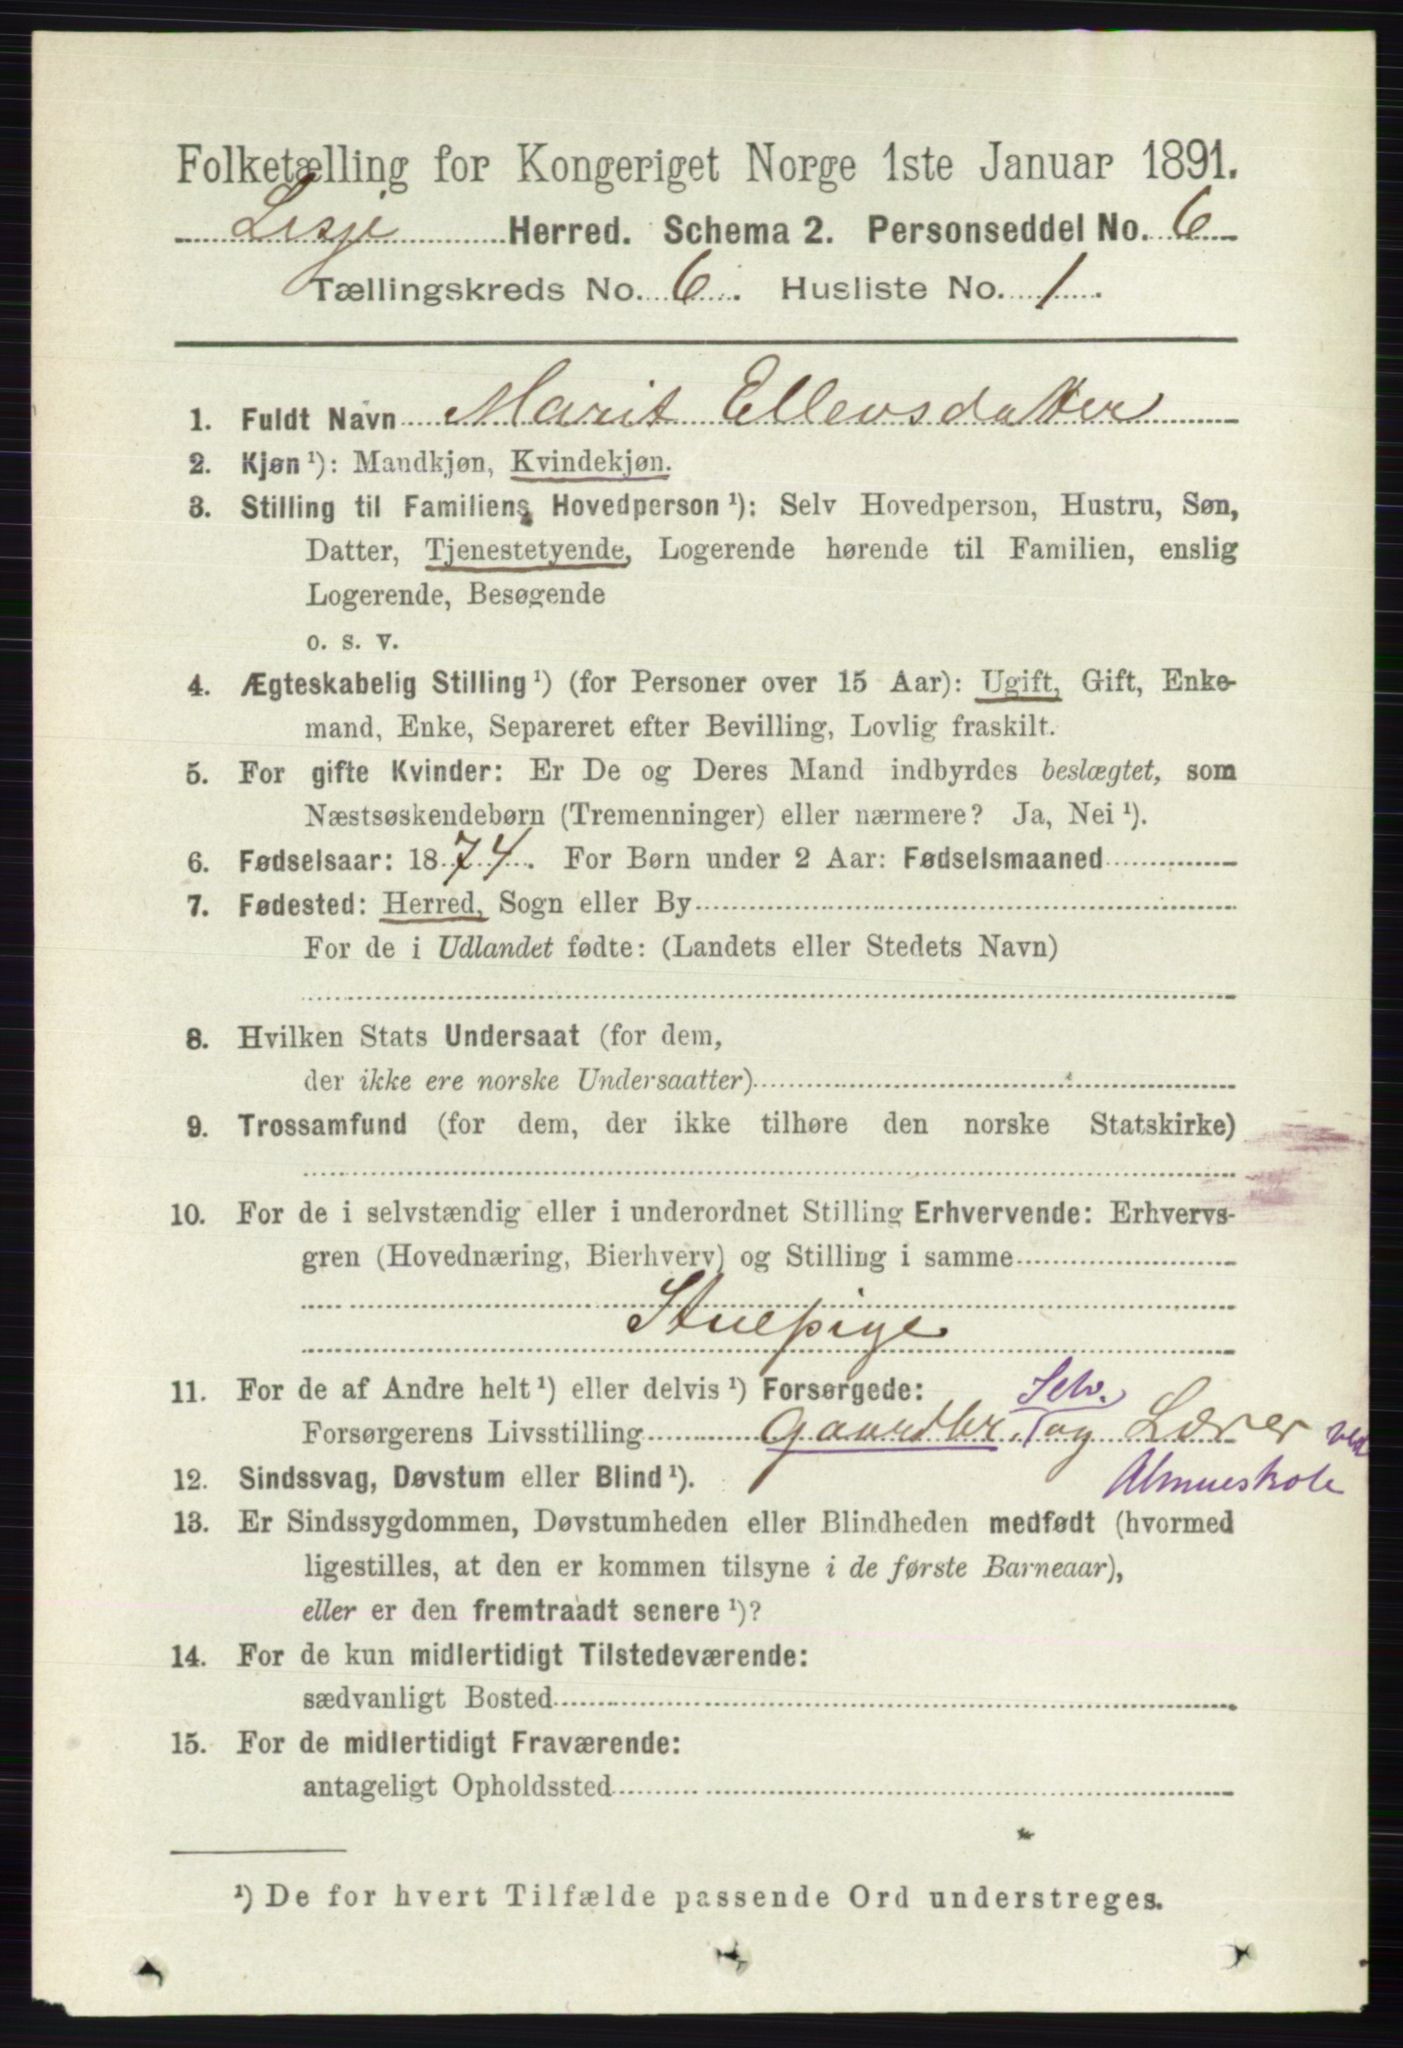 Folketælling for Kongeriget Norge 1ste Januar 1891.
Lesje Herred. Schema 2. Personseddel No. 6
Tællingskreds No. 6. Husliste No. 1.
1. Fuldt Navn Marit Ellensdatter
2. Kjøn ¹): Mandkjøn, Kvindekjøn.
3. Stilling til Familiens Hovedperson ¹): Selv Hovedperson, Hustru, Søn,
Datter, Tjenestetyende, Logerende hørende til Familien, enslig
Logerende, Besøgende
o. s. v.
4. Ægteskabelig Stilling ¹) (for Personer over 15 Aar): Ugift, Gift, Enke-
mand, Enke, Separeret efter Bevilling, Lovlig fraskilt.
5. For gifte Kvinder: Er De og Deres Mand indbyrdes beslægtet, som
Næstsøskendebørn (Tremenninger) eller nærmere? Ja, Nei ¹).
6. Fødselsaar: 1874. For Børn under 2 Aar: Fødselsmaaned
7. Fødested: Herred, Sogn eller By
For de i Udlandet fødte: (Landets eller Stedets Navn)
8. Hvilken Stats Undersaat (for dem,
der ikke ere norske Undersaatter)
9. Trossamfund (for dem, der ikke tilhøre den norske Statskirke)
10. For de i selvstændig eller i underordnet Stilling Erhvervende: Erhvervs-
gren (Hovednæring, Bierhverv) og Stilling i samme
Stuepige
11. For de af Andre helt ¹) eller delvis ¹) Forsørgede: Selv.
Forsørgerens Livsstilling Gaardbr. og Lærer ved
12. Sindssvag, Døvstum eller Blind ¹). Almueskole
13. Er Sindssygdommen, Døvstumheden eller Blindheden medfødt (hvormed
ligestilles, at den er kommen tilsyne i de første Barneaar),
eller er den fremtraadt senere ¹)?
14. For de kun midlertidigt Tilstedeværende:
sædvanligt Bosted
15. For de midlertidigt Fraværende:
antageligt Opholdssted
¹) De for hvert Tilfælde passende Ord understreges.